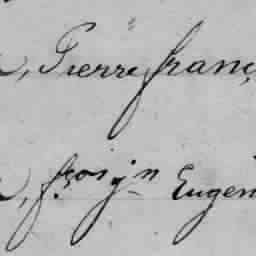 , Pierre, franç
, f.çois j.n Eugen